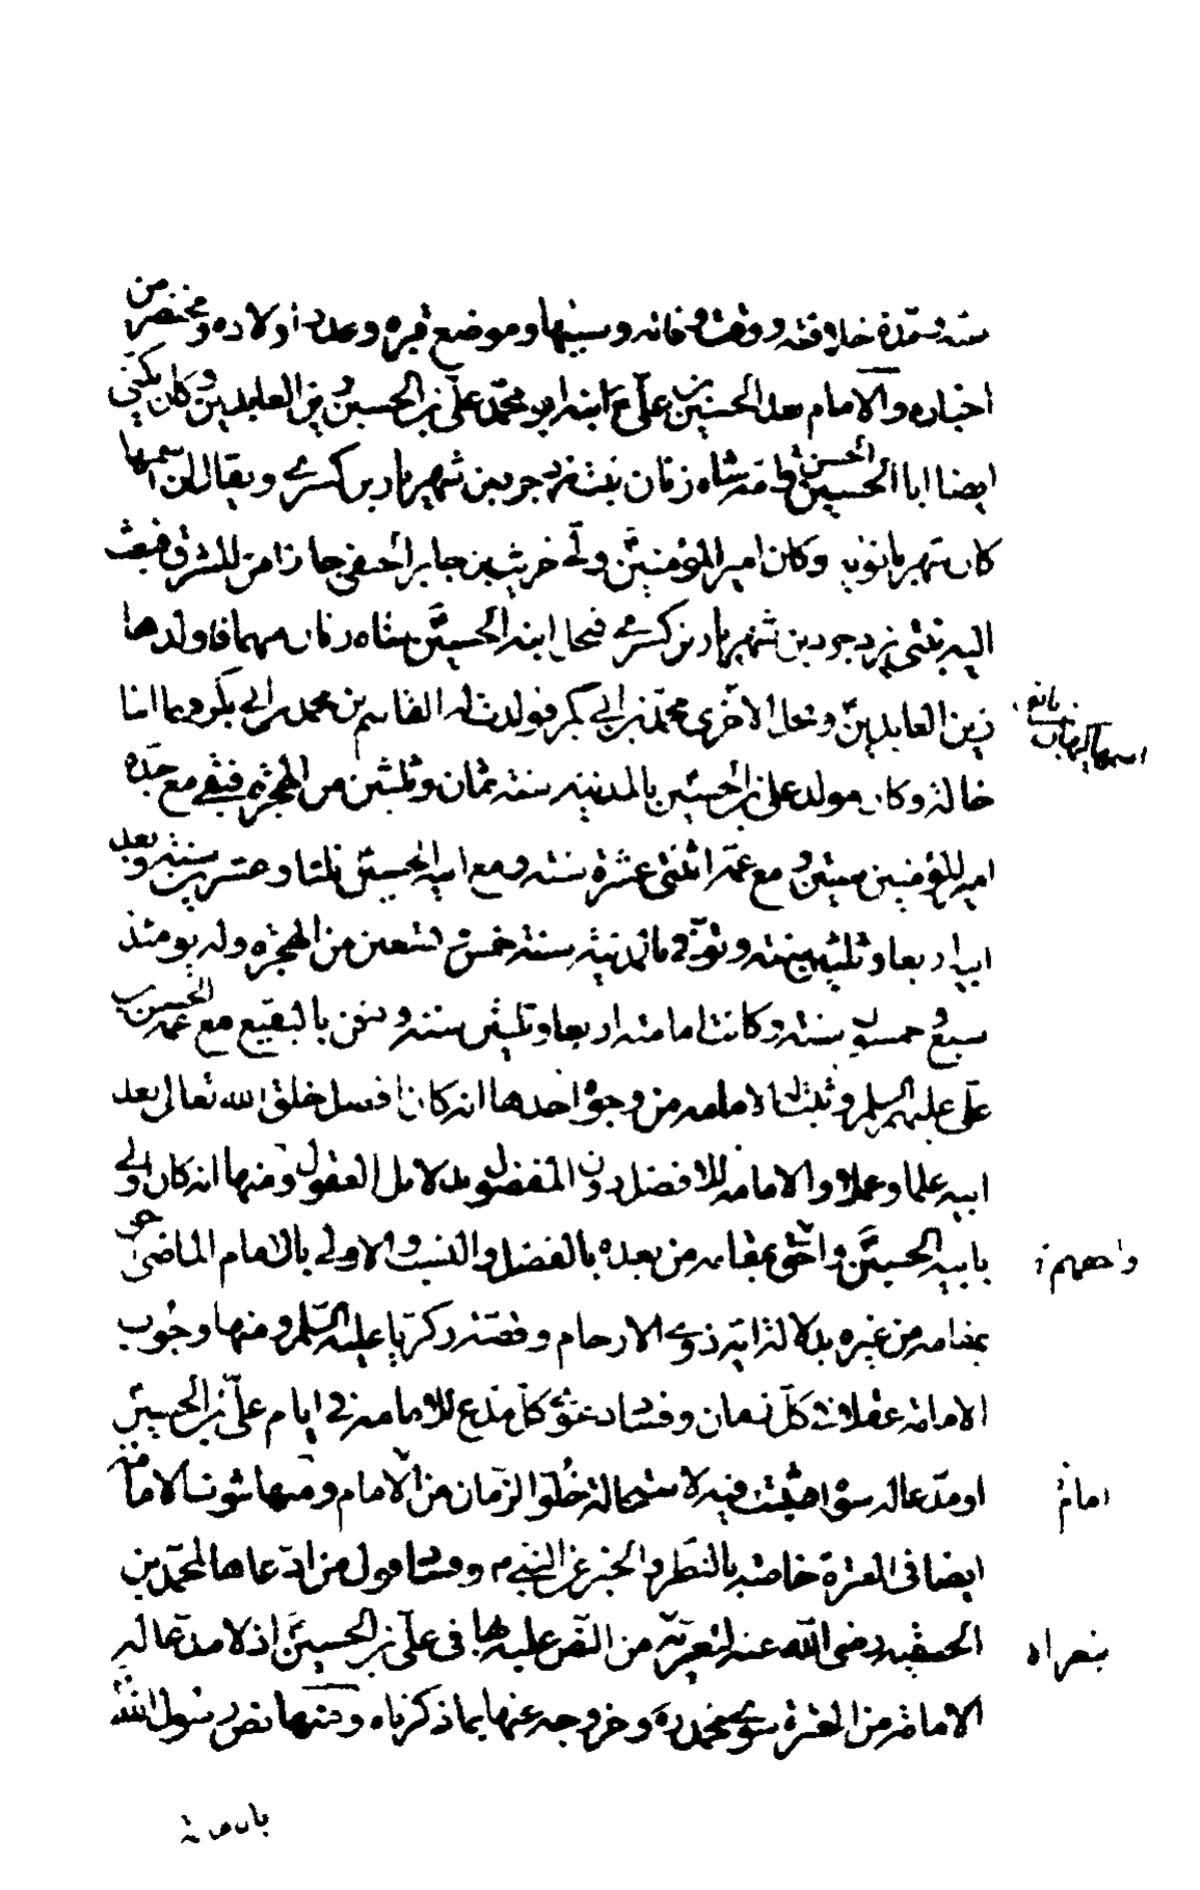 سنه ومدة خلافته ووقت وفاته وسببها وموضع قبره وعدد اولاده ومختصر من
اخباره والامام بعد الحسين بن علي ع ابنه ابو محمد علي بن الحسين زين العابدين وكان يكنى
ايضا ابا الحسن وامه شاه زنان بنت يزدجرد بن شهريار بن كسرى ويقال ان اسمها
كان شهربانويه وكان امير المؤمنين ولى حريث بن جابر الحنفي جانبا من المشرق فبعث
اليه بنتي يزدجرد بن شهريار بن كسرى فنحل ابنه الحسين شاه زنان منهما فاولدها
زين العابدين ونحل الاخرى محمد بن ابي بكر فولدت له القاسم بن محمد بن ابي بكر فهما ابنا
خالة وكان مولد علي بن الحسين بالمدينة سنة ثمان وثلثين من الهجرة فبقي مع جده
امير المؤمنين سنتين ومع عمه اثنتي عشرة سنة ومع ابيه الحسين ثلثا وعشرين سنة وبعد
ابيه اربعا وثلثين سنة وتوفي بالمدينة سنة خمس وتسعين من الهجرة وله يومئذ
سبع وخمسون سنة وكانت امامته اربعا وثلثين سنة ودفن بالبقيع مع عمه الحسن بن
علي عليهم السلم وثبتت له الامامة من وجوه احدها انه كان افضل خلق الله تعالى بعد
ابيه علما وعملا والامامة للافضل دون المفضول بدلائل العقول ومنها انه كان اولى
بابيه الحسين واحق بمقامه من بعده بالفضل والنسب والاولى بالامام الماضي احق
بمقامه من غيره بدلالة اية ذوي الارحام وقصة زكريا عليه السلم ومنها وجوب
الامامة عقلا في كل زمان وفساد دعوى كل مدع للامامة في ايام علي بن الحسين
او مدعا له سواه فثبتت فيه لاستحالة خلو الزمان من الامام ومنها ثبوت الامامة
ايضا في العترة خاصة بالنظر والخبر عن النبي م وفساد قول من ادعاها لمحمد بن
الحنفيه رضي الله عنه لتعريه من النص عليه بها فثبت انها في علي بن الحسين اذ لا مدعا له
الامامة من العترة سوى محمد ره وخروجه عنها بما ذكرناه ومنها نص رسول الله
امام